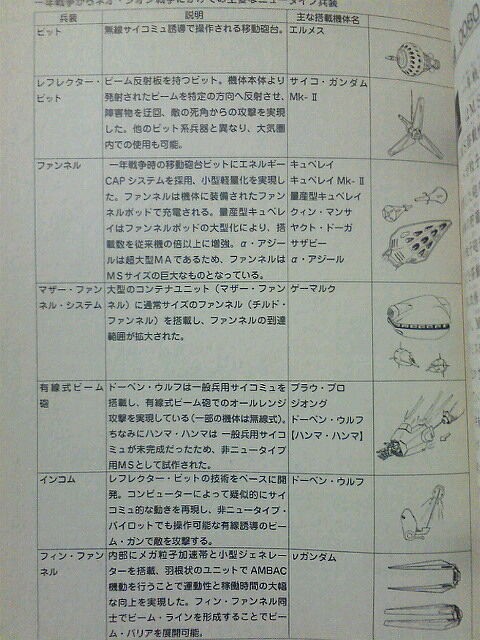 一年戦争からネオ・ジオン戦争にかけての主要なニュータイプ兵装
兵装 説明 主な搭載機体名
ビット 無線サイコミュ誘導で操作される移動砲台。 エルメス
レフレクター・ビット
ビーム反射板を持つビット。機体本体より
発射されたビームを特定の方向へ反射させ、
障害物を迂回、敵の死角からの攻撃を実現
した。他のビット系兵器と異なり、大気圏
内での使用も可能。
サイコ・ガンダム
Mk-Ⅱ
ファンネル
一年戦争時の移動砲台ビットにエネルギー
CAPシステムを採用、小型軽量化を実現し
た。ファンネルは機体に装備されたファン
ネルポッドで充電される。量産型キュベレ
イはファンネルポッドの大型化により、搭
載数を従来機の倍以上に増強。α・アジー
ルは超大型MAであるため、ファンネルは
MSサイズの巨大なものとなっている。
キュベレイ
キュベレイMk-Ⅱ
量産型キュベレイ
クィン・マンサ
ヤクト・ドーガ
サザビー
α・アジール
マザー・ファン
ネル・システム
大型のコンテナユニット（マザー・ファン
ネル）に通常サイズのファンネル（チルド・
ファンネル）を搭載し、ファンネルの到達
範囲が拡大された。
ゲーマルク
有線式ビーム
砲
ドーベン・ウルフは一般兵用サイコミュを
搭載し、有線式ビーム砲でのオールレンジ
攻撃を実現している（一部の機体は無線式）。
ちなみにハンマ・ハンマは一般兵用サイコ
ミュが未完成だったため、非ニュータイプ
用MSとして試作された。
ブラウ・ブロ
ジオング
ドーベン・ウルフ
【ハンマ・ハンマ】
インコム
レフレクター・ビットの技術をベースに開
発。コンピューターによって疑似的にサイ
コミュ的な動きを再現し、非ニュータイプ・
パイロットでも操作可能な有線誘導のビー
ム・ガンで敵を攻撃する。
ドーベン・ウルフ
フィン・ファン
ネル
内部にメガ粒子加速帯と小型ジェネレー
ターを搭載、羽根状のユニットでAMBAC
機動を行うことで運動性と稼働時間の大幅
な向上を実現した。フィン・ファンネル同
士でビーム・ラインを形成することでビー
ム・バリアを展開可能。
νガンダム